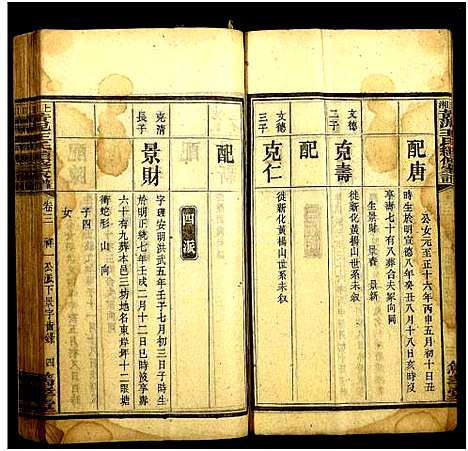 配唐
公女元至正十六年丙申五月初十日丑
時生於明宣德八年癸丑八月十八日亥時沒
享壽七十有八葬合夫冢向同
生景財 景春 景新
文德
二子
克壽
徙新化黃楊山世系未叙
配
文德
三子
克仁
徙新化黃楊山世系未叙
配
四派
克清
長子
景財
字理安明洪武五年壬子七月初三日子時生
於明正統七年壬戌二月十二日巳時沒享壽
六十有九葬本邑三坊地名東岸坪十二眼塘
衝蛇形 山 向
子四
女
卷三 祥一公派下景字齒錄 四